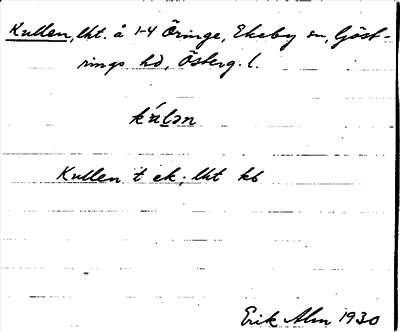 Kullen, lht. å 1-4 Öringe, Ekeby sn, Göst-
rings hd, Österg. l.
kúlən
Kullen t ek; lht kb
Erik Alm 1930